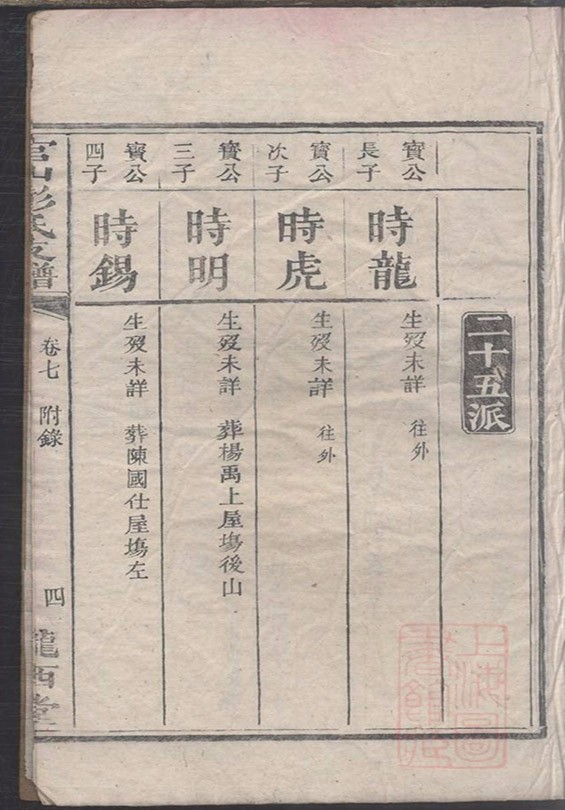 二十五派
寳公
長子
時龍
生歿未詳 往外
寳公
次子
時虎
生歿未詳 往外
寳公
三子
時明
生歿未詳 葬楊禹上屋塲後山
寳公
四子
時錫
生歿未詳 葬陳國仕屋塲左
官山彭氏支譜
卷七 附錄
四
隴西堂
上海圖書館藏